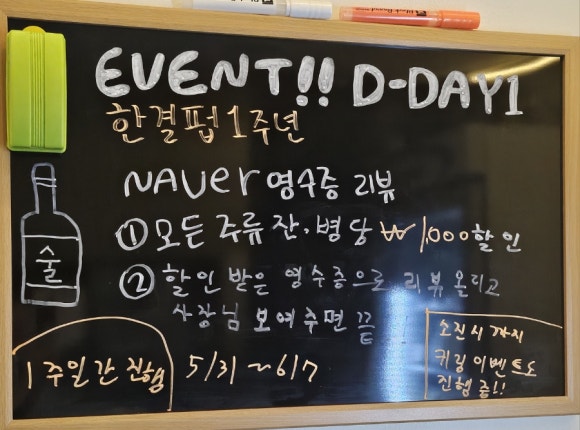 EVENT!! D-DAY1
한결펍 1주년
NAVer 영수증 리뷰
① 모든 주류 잔·병 당 ₩1,000 할인
② 할인 받은 영수증으로 리뷰 올리고
사장님 보여주면 끝
술
1주일간 진행 5/31~6/7
소진시 까지
키링 이벤트도
진행 중!!